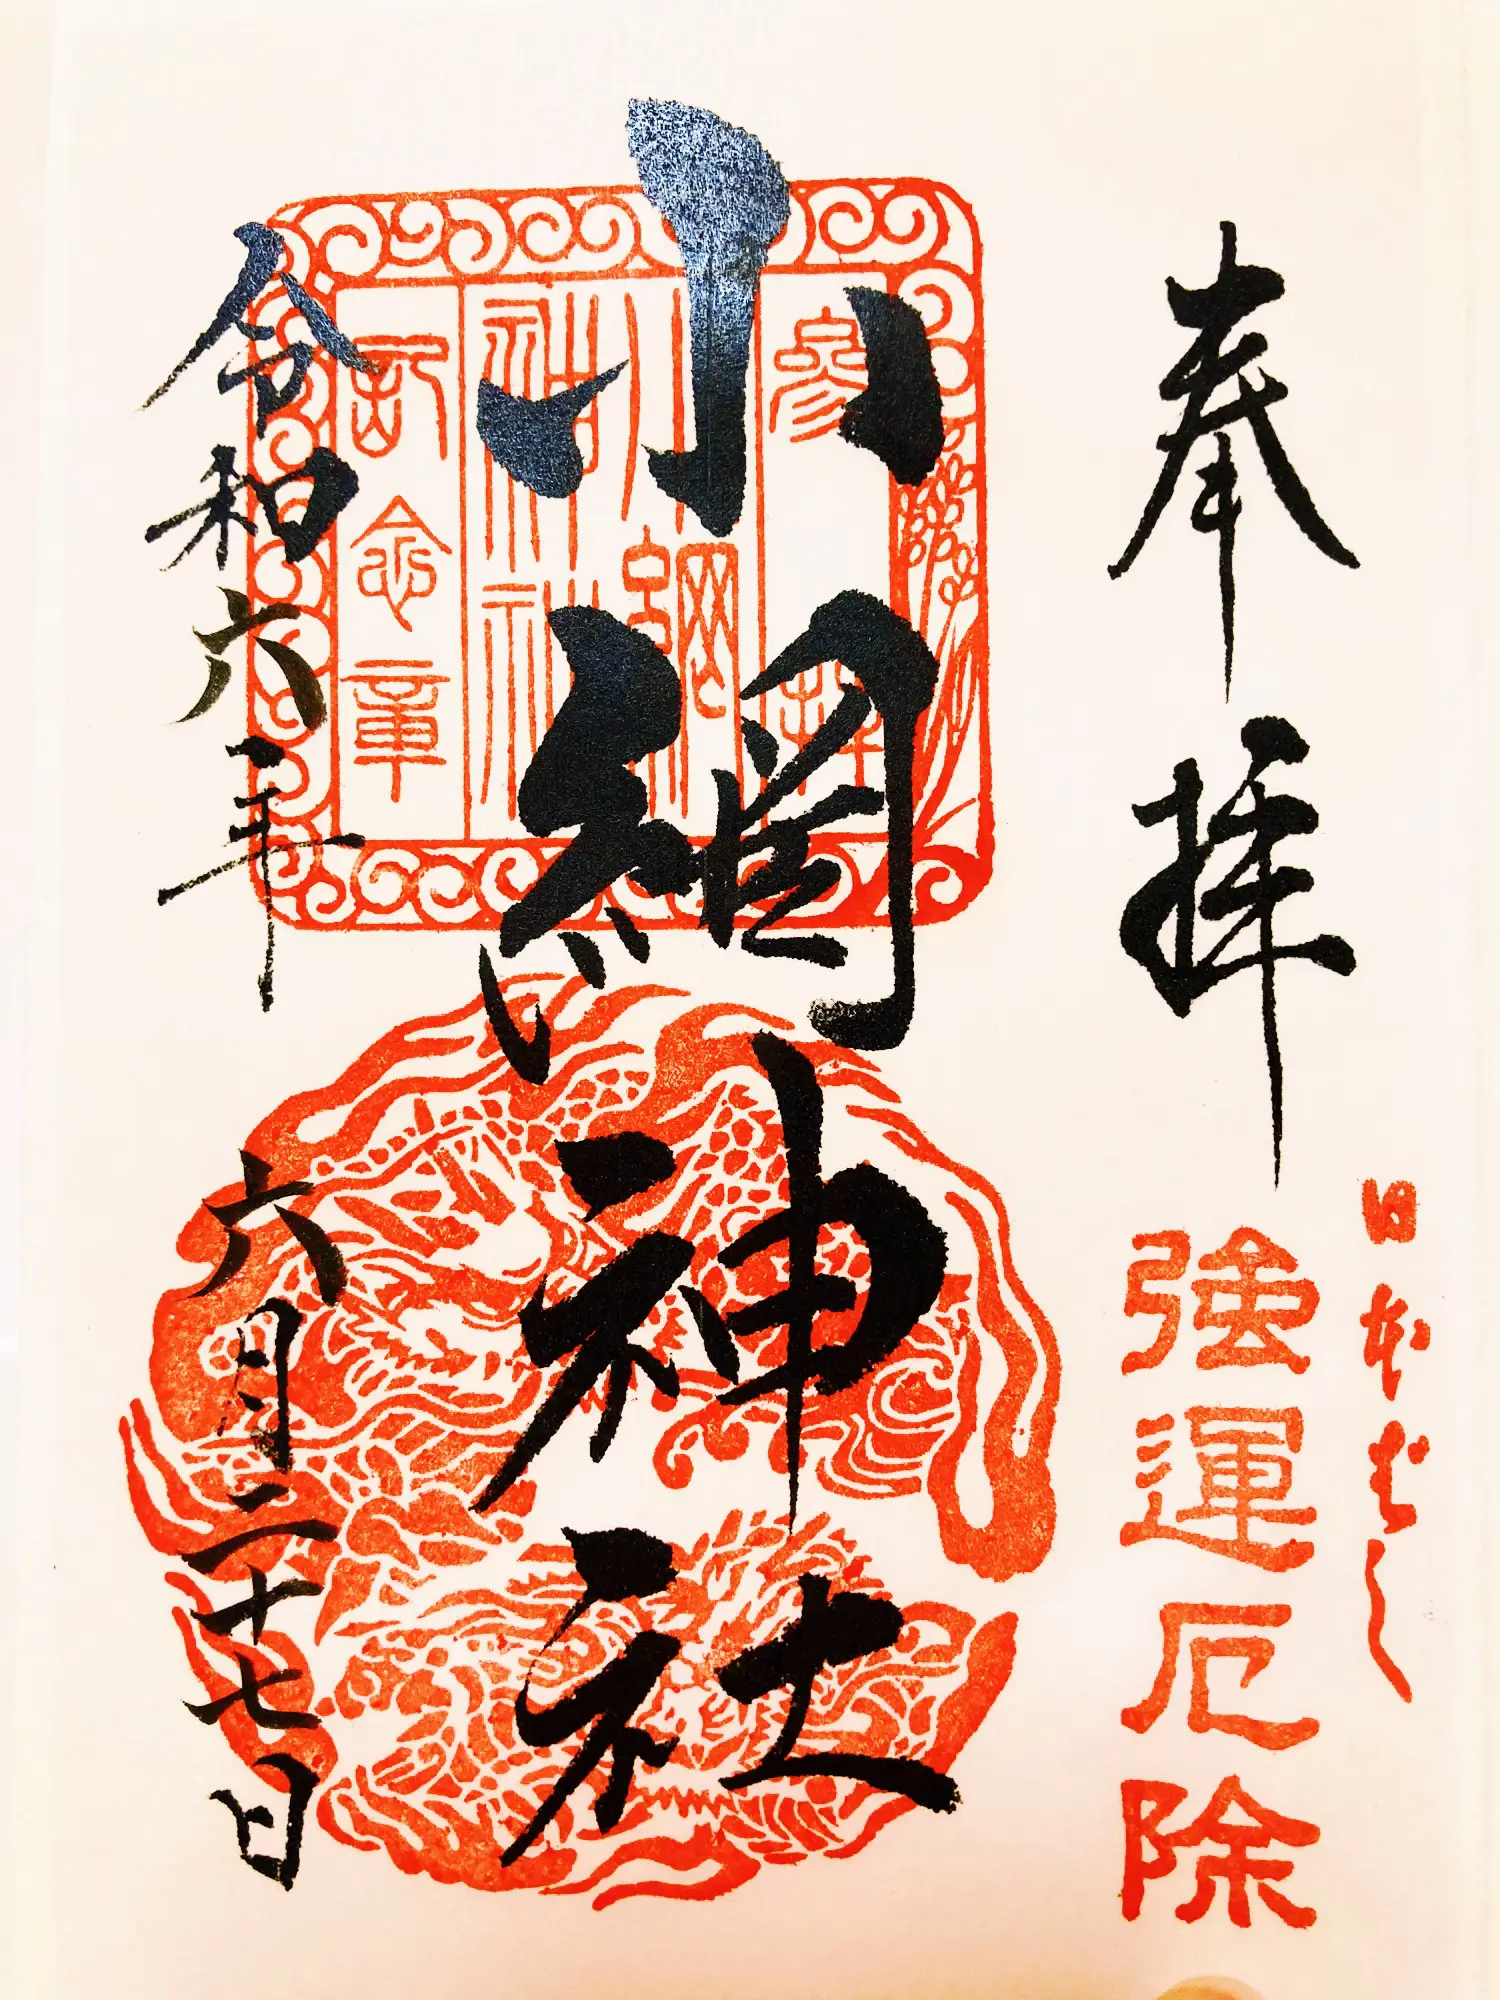 奉拝
日本ばし
強運厄除
小網神社
参拝
小網
神社
記念章
令和六年
六月二十七日